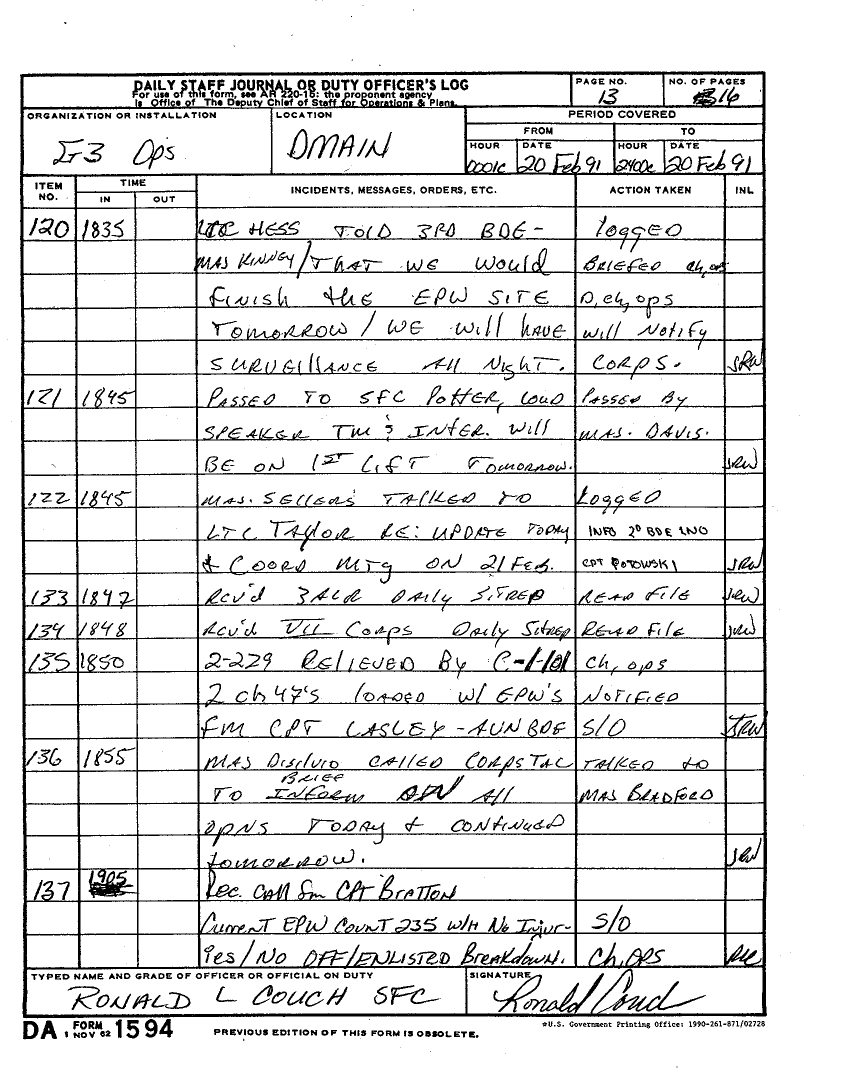 DAILY STAFF JOURNAL OR DUTY OFFICER'S LOG
For use of this form, see AR 220-15; the proponent agency
is Office of The Deputy Chief of Staff for Operations & Plans.
PAGE NO.
13
NO. OF PAGES
16
ORGANIZATION OR INSTALLATION
G3 Ops
LOCATION
DMAIN
PERIOD COVERED
FROM
TO
HOUR
DATE
HOUR
DATE
0001C
20 Feb 91
2400C
20 Feb 91
ITEM NO.
TIME
IN
OUT
INCIDENTS, MESSAGES, ORDERS, ETC.
ACTION TAKEN
INL
120 1835 LTC HESS TOLD 3RD BDE- logged
MAJ KINNEY/THAT WE WOULD BRIEFED ch, ops
FINISH the EPW SITE D, ch, ops
TOMORROW/WE will have will Notify
SURVEILLANCE All Night. CORPS. JRW
121 1845 PASSED TO SFC POTTER, LOUD PASSED By
SPEAKER TM'S INTER. Will MAJ. DAVIS.
BE ON 1ST LIFT TOMORROW. JRW
122 1845 MAJ. SELLERS TALKED TO Logged
LTC TAYlOR RE: UPDATE TODAY INFO 2D BDE LNO
& COORD MTG ON 21 FEB. CPT POTOWSKI JRW
133 1847 RCV'd 3ALR DAILY SITREP READ FILE JRW
134 1848 RCV'd VII CORPS DAILY SITREP READ FILE JRW
135 1850 2-229 RELIEVED By C-1-101 ch, ops
2 ch 47'S loaded w/ EPW'S NOTIFIED
FM CPT LASLEY-AVN BDE S/O JRW
136 1855 MAJ CALLED CORPS TAC TALKED to
BRIEF
TO INFORM ON All MAJ BRADFORD
OPNS TODAY & CONTINUED
tomorrow. JRW
137 1905 Rec. Call fm CPT Bratton
Current EPW Count 235 w/H No Injur- S/O
ies/No OFF/ENLISTED Breakdown. Ch, OPS RLC
TYPED NAME AND GRADE OF OFFICER OR OFFICIAL ON DUTY
RONALD L COUCH SFC
SIGNATURE
Ronald Couch
DA FORM 1 NOV 62 1594
PREVIOUS EDITION OF THIS FORM IS OBSOLETE.
*U.S. Government Printing Office: 1990-261-871/02728